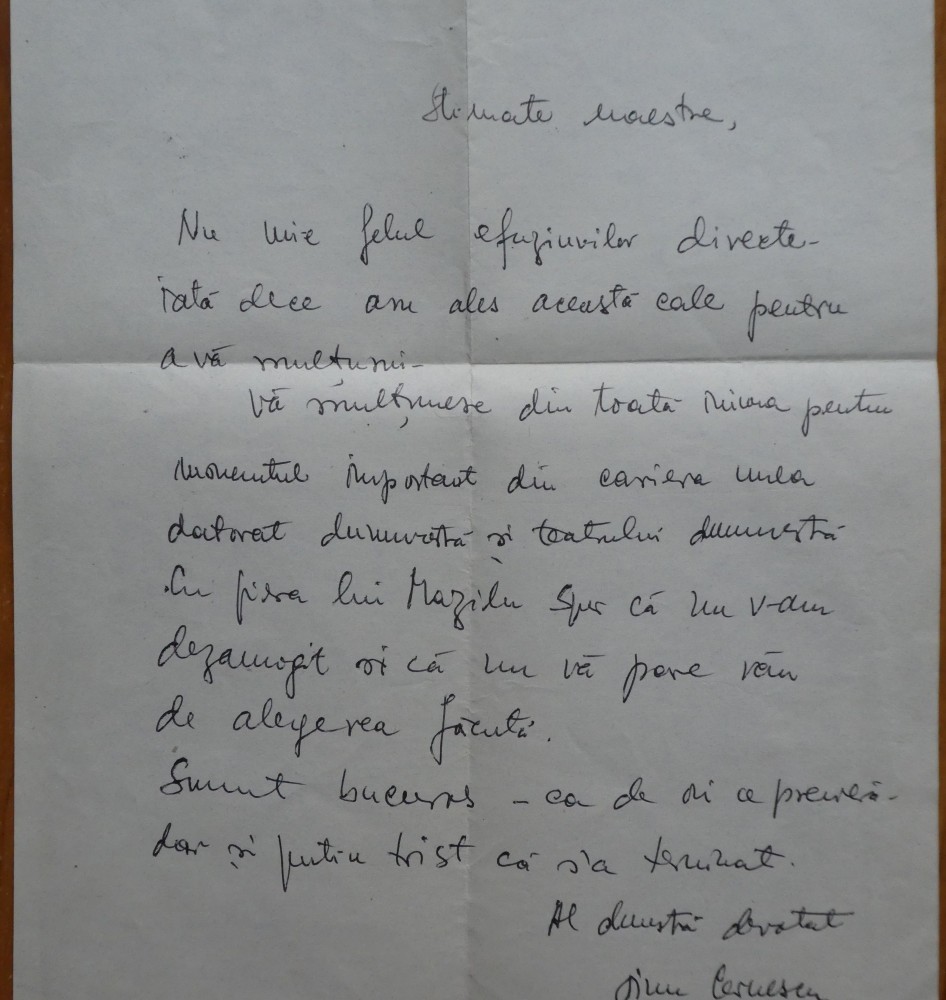 Stimate maestre,
Nu mi-e felul efuziunilor directe-
iată dece am ales această cale pentru
a vă mulțumi-
Vă mulțumesc din toată inima pentru
momentul important din cariera mea
datorat dumvstră și teatrului dumvstră
Cu piesa lui Mazilu sper că nu v-am
dezamăgit și că nu vă pare rău
de alegerea făcută.
Sunt bucuros - ca de zi a premierii-
dar și puțin trist că s'a terminat.
Al dumstră devotat
Dinu Cernescu